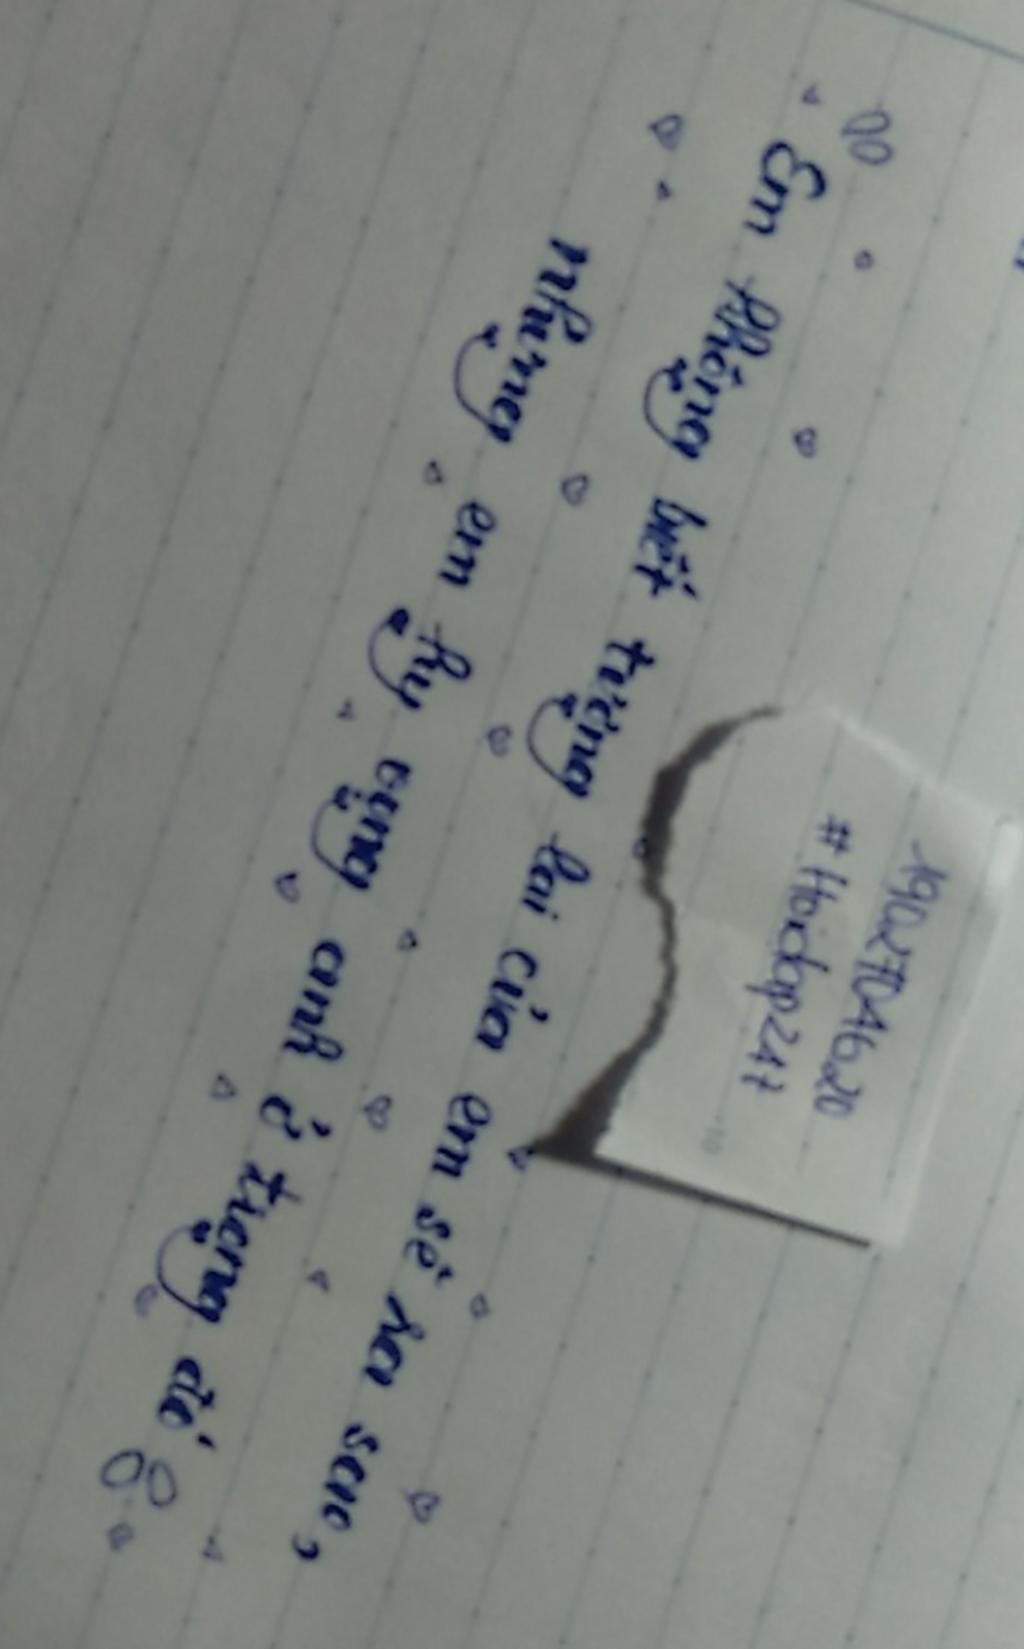 "Em không biết tương lai của em sẽ ra sao,
nhưng em hy vọng anh ở trong đó"
#Hoidap247